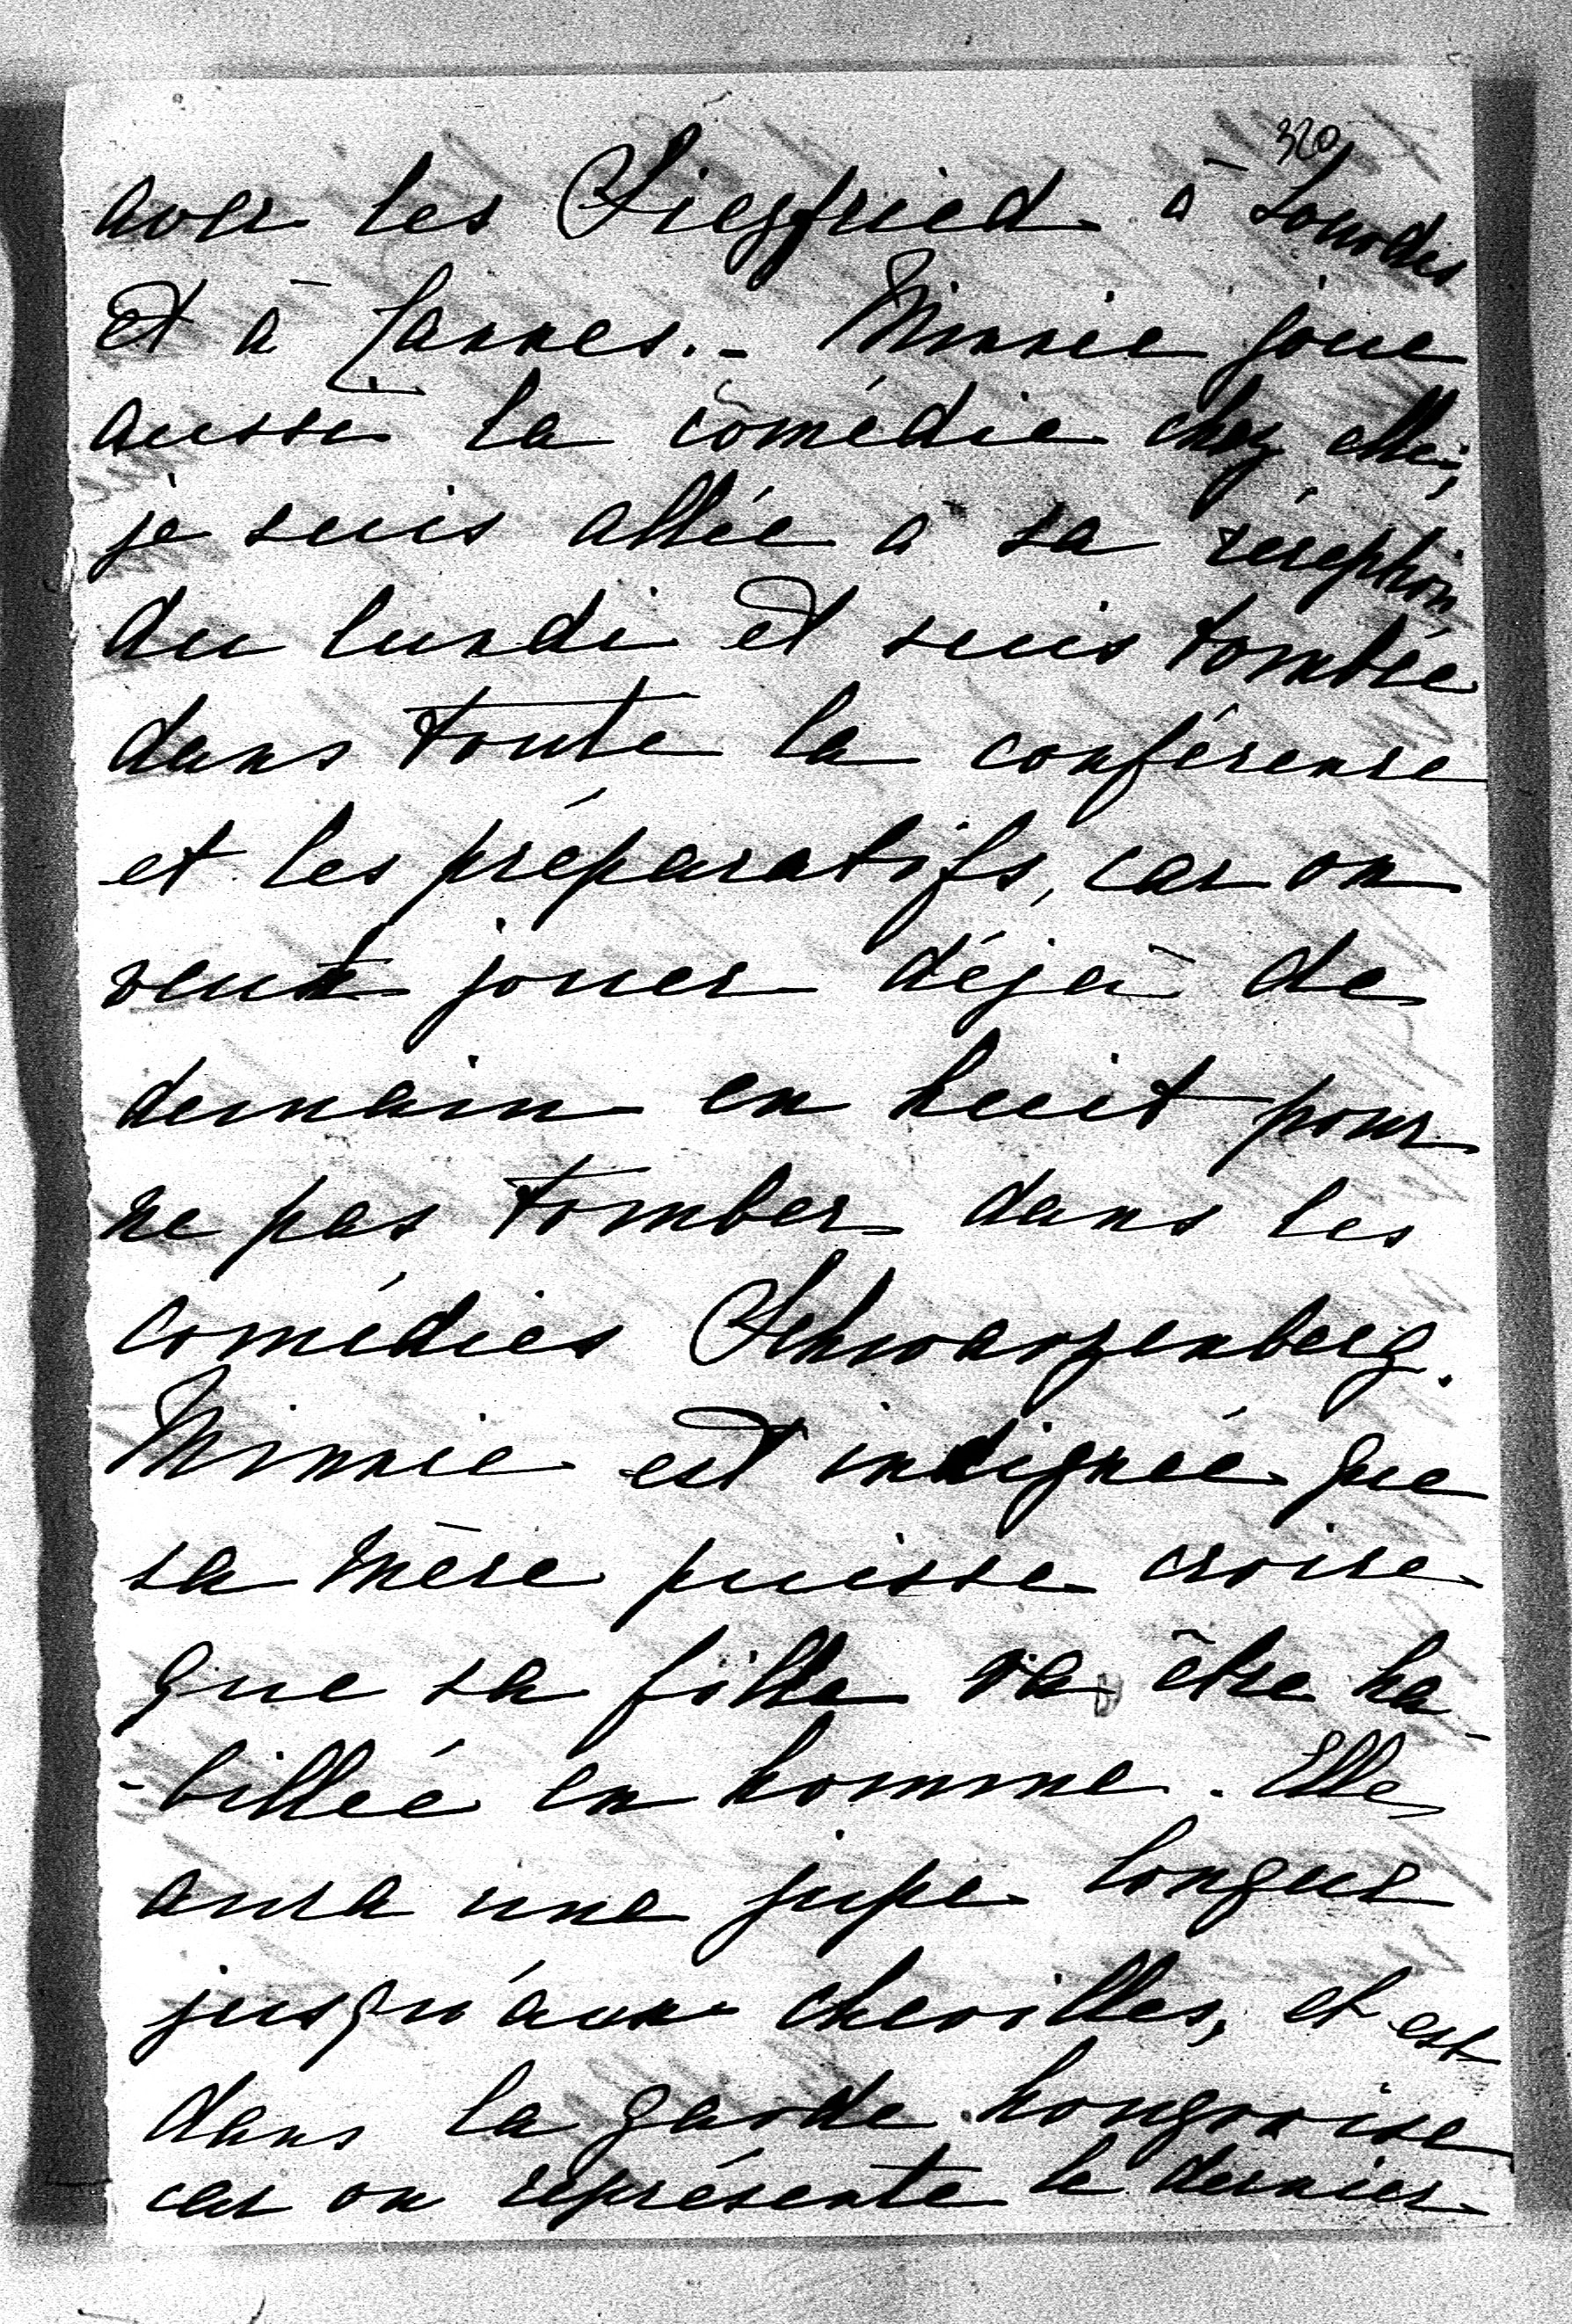 320
avec les Siegfried à Lourdes
et à Cannes. - Minnie joue
aussi la comédie chez elle;
je suis allée à sa réception
du lundi et suis tombée
dans toute la conférence
et les préparatifs, car on
veut jouer déjà de
demain en huit pour
ne pas tomber dans les
comédies Schwarzenberg.
Minnie est indignée que
sa mère puisse croire
que sa fille va être ha-
-billée en homme. Elle
aura une jupe longue
jusqu'aux chevilles, et est
dans la garde hongroise
car on représente le dernier